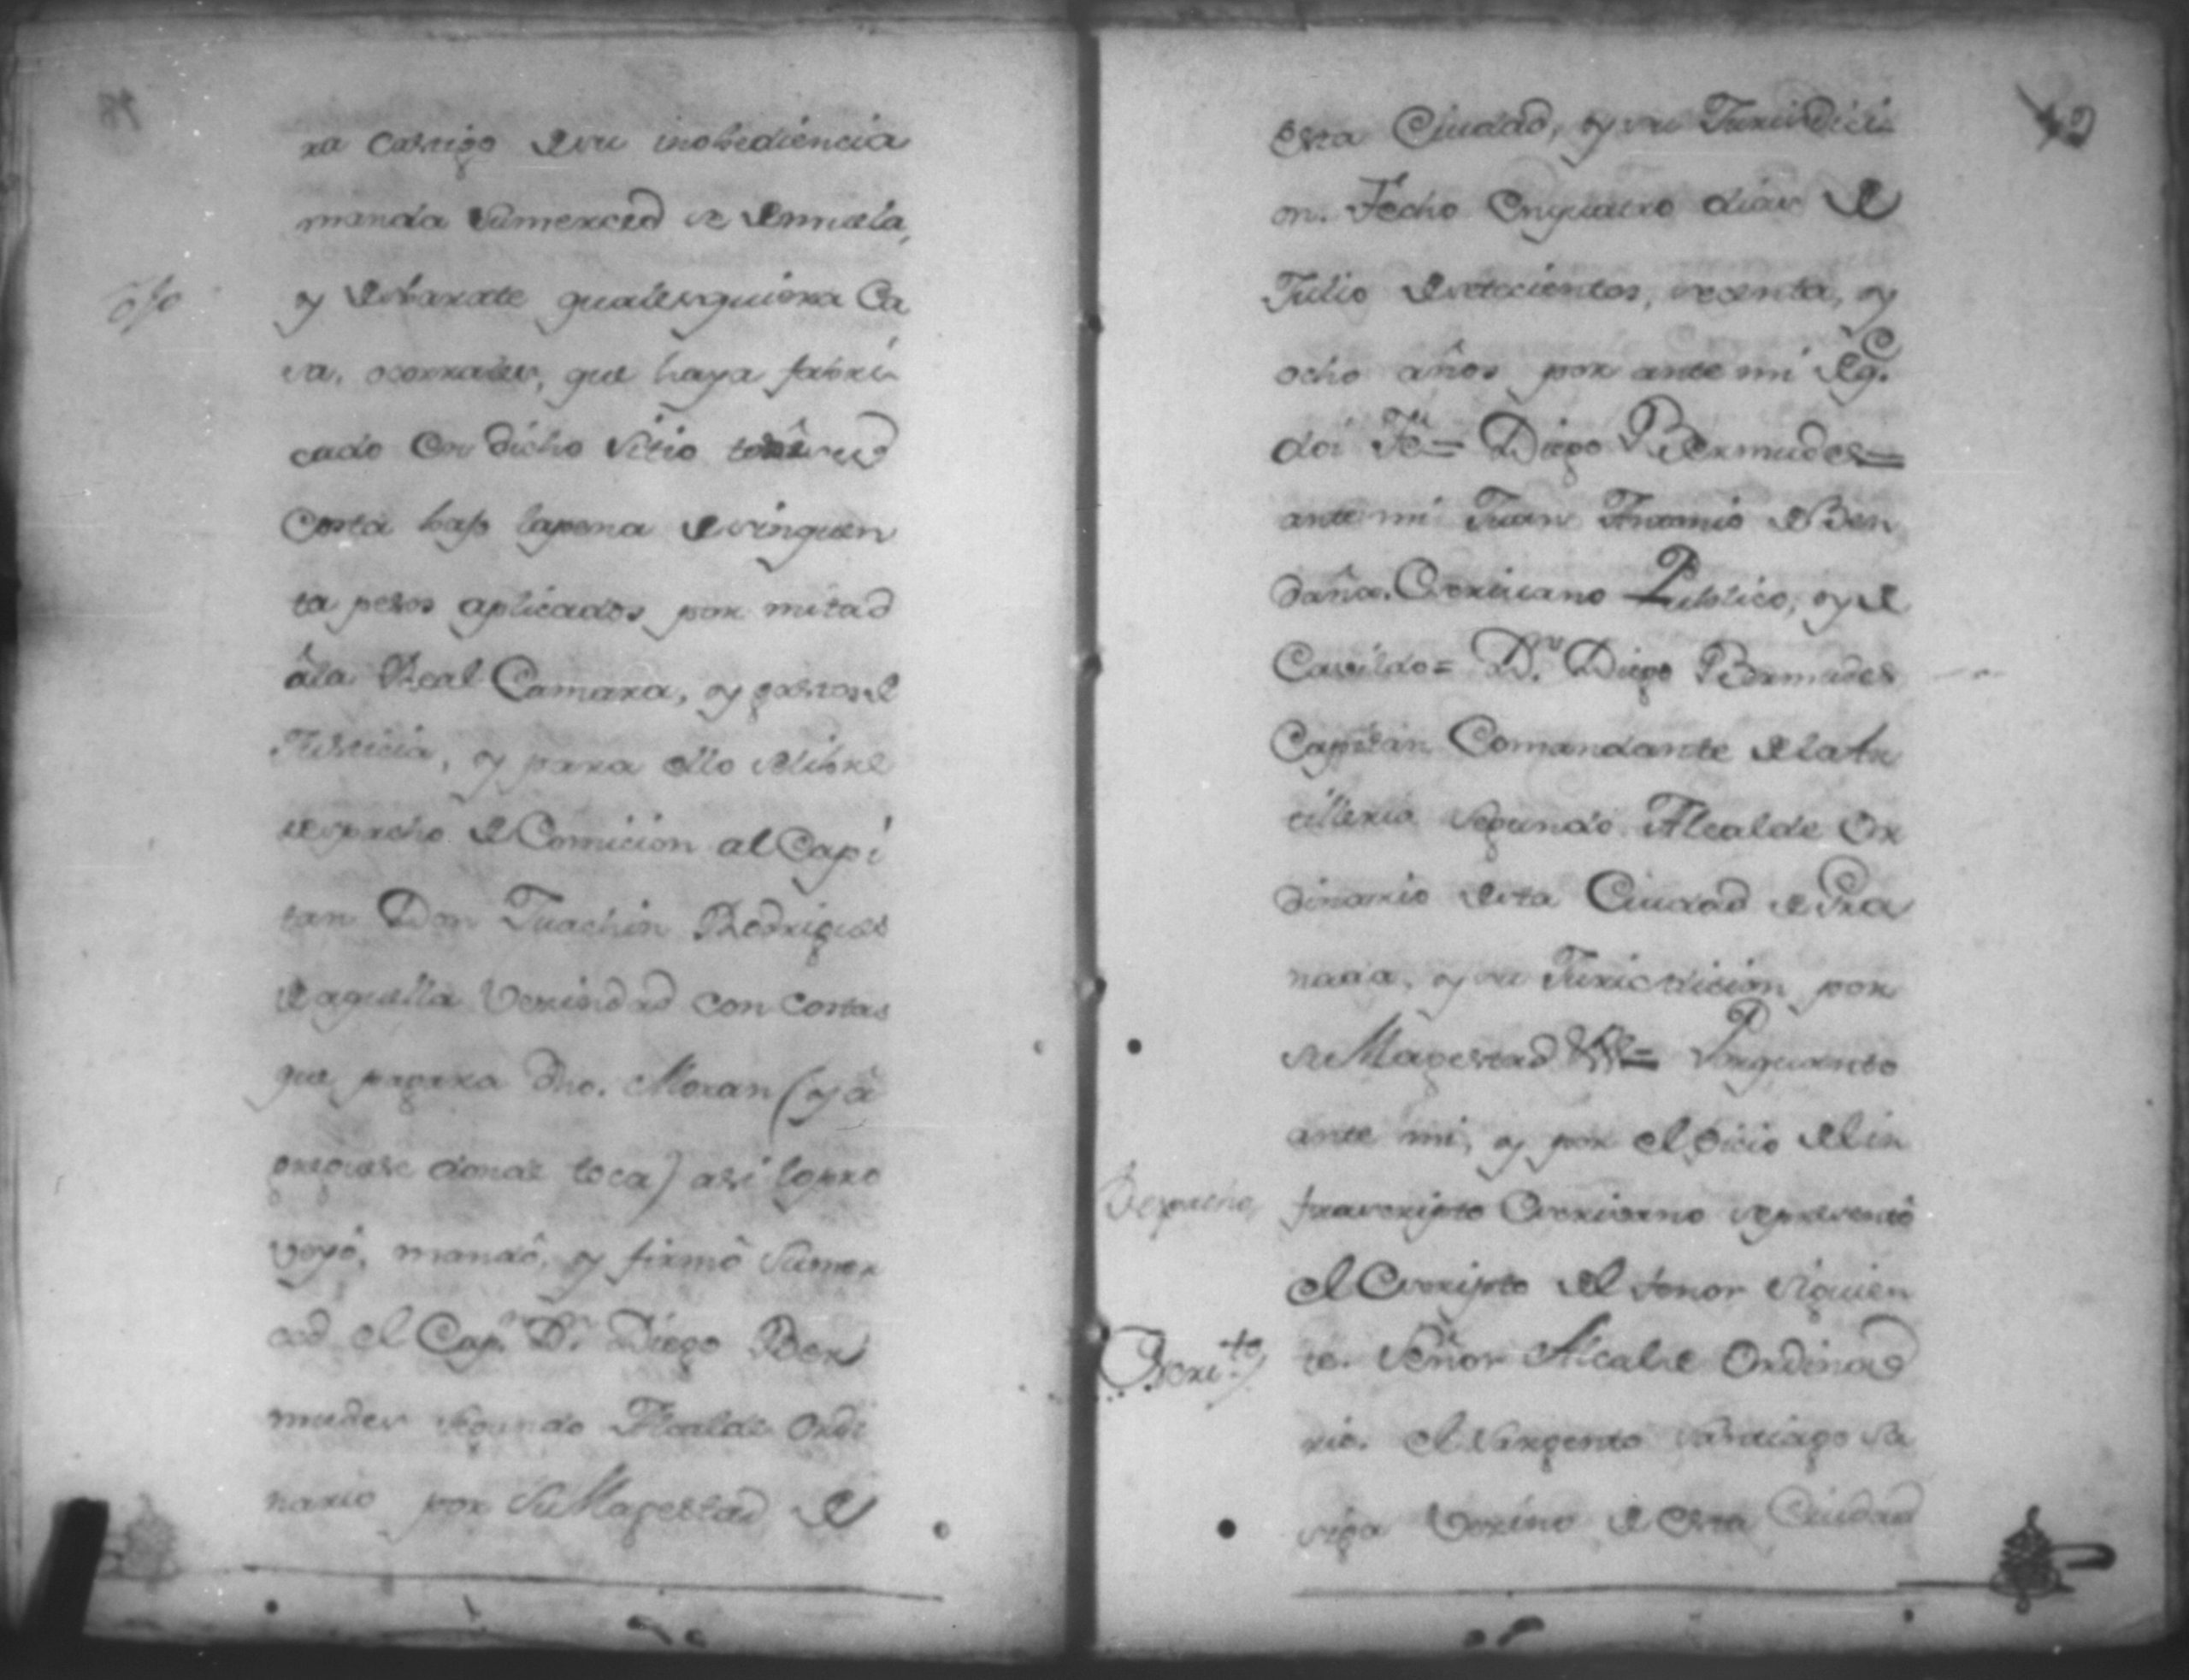 ra castigo de su inobediencia
manda Sumerced se demuela,
y desbarate qualesquiera Ca
sa, o corrales, que haya fabri
ojo
cado en dicho Sitio todo a su
Costa bajo la pena de sinquen
ta pesos aplicados por mitad
â la Real Camara, y gastos de
Justicia, y para ello se libre
despacho de Comicion al Capi
tan Don Juachin Rodrigues
de aquella Vecindad con costas
que pagara dho. Moran (y â
donde toca) asi lo pro
veyó, mandô, y firmô Sumer
ced el Cap.n D.n Diego Ber
mudes segundo Alcalde Ordi
nario por Su Magestad de
esta Ciudad, y su Jurisdici
on. Fecho en quatro dias de
Julio de setecientos, sesenta, y
ocho años por ante mi de q.e
doi Fe = Diego Bermudes =
ante mi Juan Antonio de Ben
daña. Escrivano Publico, y de
Cavildo = D.n Diego Bermudes
Capitan Comandante de la Ar
tilleria segundo Alcalde Or
dinario de esta Ciudad de Gra
nada, y su Jurisdicion por
su Magestad = Por quanto
ante mi, y por el oficio del in
Despacho
frascripto Escrivano se presentô
el Escripto del tenor siguien
Escri.to
te. Señor Alcalde Ordina
rio. el Sargento Santiago Sa
Vecino de esta Ciudad